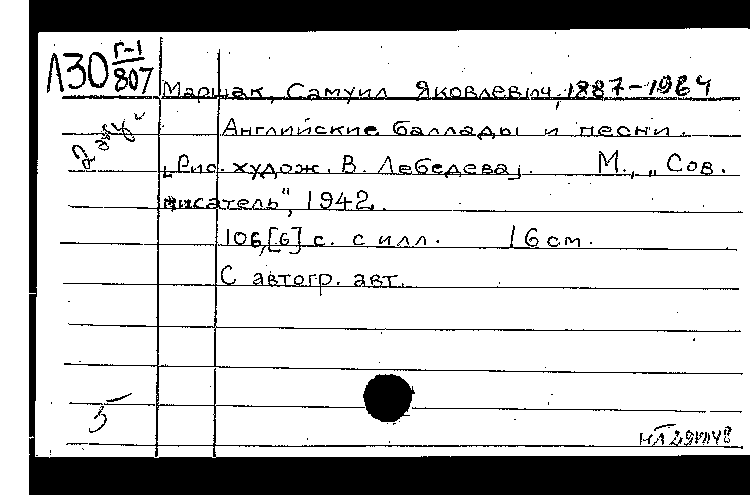 Л30 Г-1/807
Маршак, Самуил Яковлевич, 1887-1964
Английские баллады и песни.
„Рис. худож. В. Лебедева]. М., „Сов.
писатель", 1942.
106,[6] с. с илл. 16 см.
С автогр. авт.
5